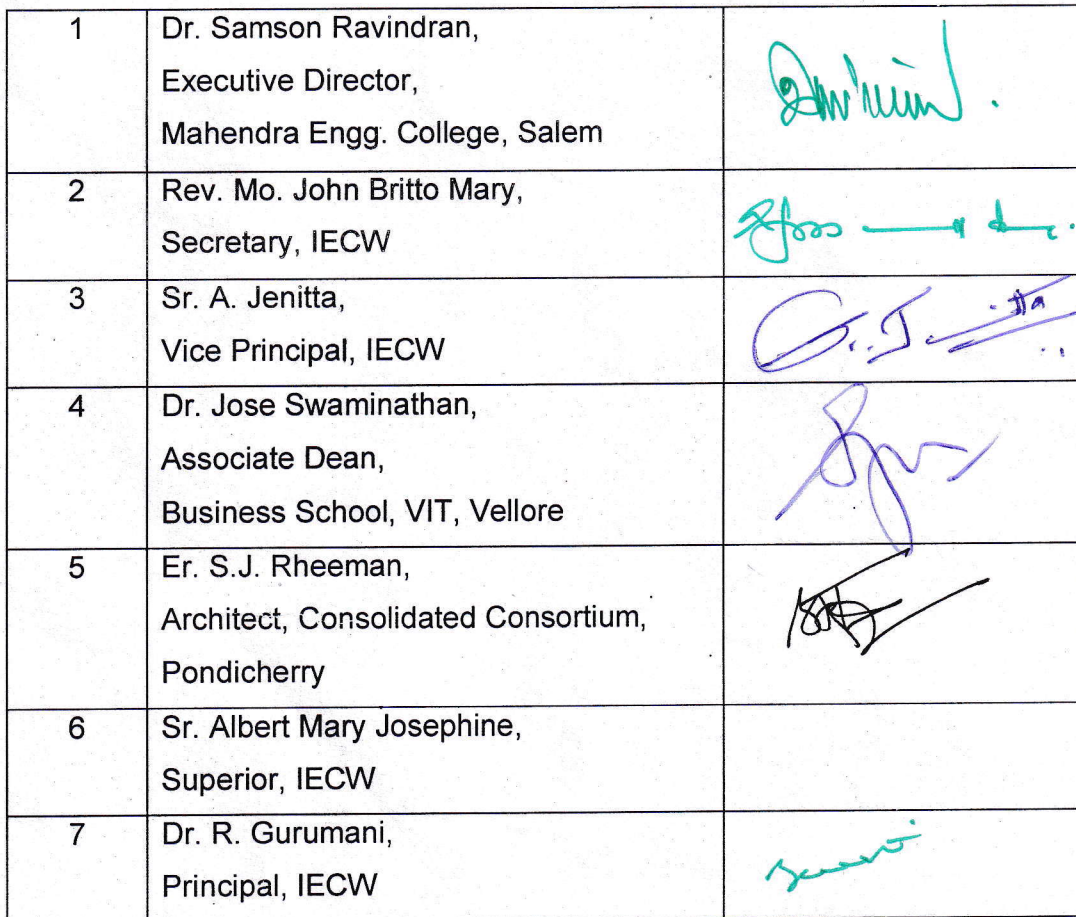 1 Dr. Samson Ravindran,
Executive Director,
Mahendra Engg. College, Salem
2 Rev. Mo. John Britto Mary,
Secretary, IECW
3 Sr. A. Jenitta,
Vice Principal, IECW
4 Dr. Jose Swaminathan,
Associate Dean,
Business School, VIT, Vellore
5 Er. S.J. Rheeman,
Architect, Consolidated Consortium,
Pondicherry
6 Sr. Albert Mary Josephine,
Superior, IECW
7 Dr. R. Gurumani,
Principal, IECW